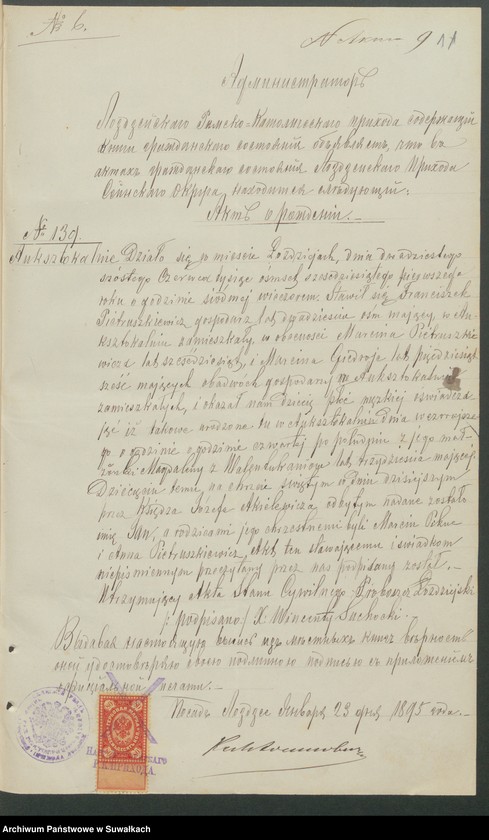 № 6.
9
Администраторъ
Лоздзейскаго Римско-Католическаго прихода содержащій
книги гражданскаго состоянія объявляетъ, что въ
актахъ гражданскаго состоянія Лоздзейскаго Прихода
Сейнскаго Округа, находится слѣдующій:
Актъ о рожденіи.
№ 139
Działo się w mieście Łoździejach, dnia dwudziestego
szóstego Czerwca tysiąc ośmset sześćdziesiątego pierwszego
roku o godzinie siódmej wieczorem. Stawił się Franciszek
Pietruszkiewicz gospodarz lat dwadzieścia ośm mający, w
zamieszkały, w obecności Marcina Pietruszkie
wicza lat sześćdziesiąt, i Marcina Giedrojc lat pięćdziesiąt
sześć mających obudwóch gospodarzy w
zamieszkałych, i okazał nam dziecię płci męzkiej oświadcza
jąc iż takowe urodzone tu w dnia wczorajsze
go o godzinie o godzinie czwartej po południu z jego mał
żonki Magdaleny z lat trzydzieścia mającej
Dziecięciu temu na chrzcie świętym w dniu dzisiejszym
przez Księdza Józefa odbytym nadane zostało
imię a rodzicami jego chrzestnemi byli Marcin
i Anna Pietruszkiewicz. Akt ten stawającemu i świadkom
niepismiennym przeczytany przez nas podpisany został.
Utrzymujący Akta Stanu Cywilnego Proboszcz Łoździejski
/:podpisano/ X. Wincenty Suchocki.
Выдавая настоящую выпись изъ мѣстныхъ книгъ вѣрность
оной удостовѣряю своею подлинною подписью съ приложеніемъ
оффиціальной печати.
Посадъ Лоздзее Января 23 дня 1895 года.
ПРИХОДА.
Archiwum Państwowe w Suwałkach